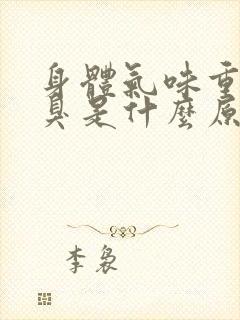 身體氣味重
臭是什麼原
李裊